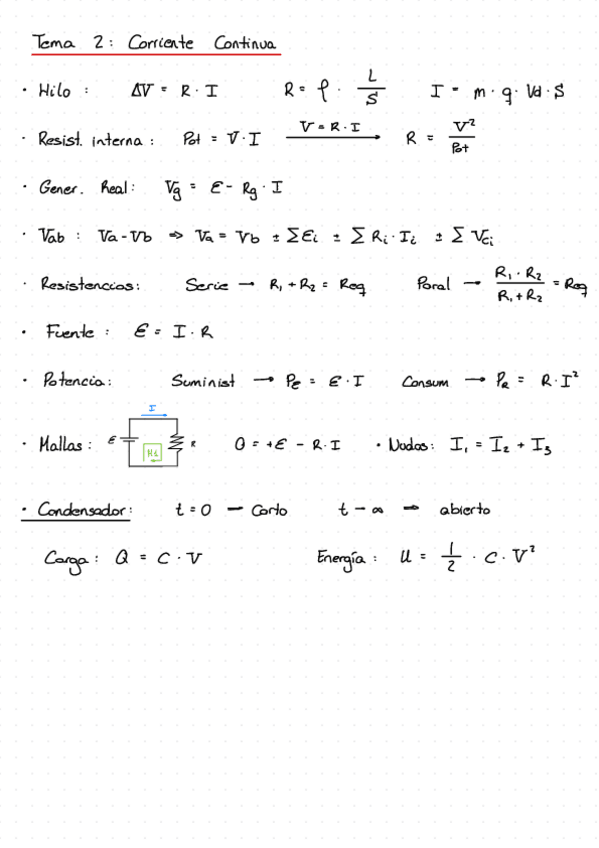 Tema 2: Corriente Continua
· Hilo: ΔV = R · I    R = ρ · L/S    I = m · q · Vd · S
· Resist. interna: Pot = V · I    V = R · I →    R = V²/Pot
· Gener. Real: Vg = ε - Rg · I
· Vab: Va - Vb ⇒ Va = Vb ± ΣEi ± ΣRi · Ii ± ΣVci
· Resistencias: Serie → R₁ + R₂ = Req    Paral → R₁ · R₂/R₁ + R₂ = Req
· Fuente: ε = I · R
· Potencia: Suminist → Pε = ε · I    Consum → PR = R · I²
I
· Mallas: ε R    0 = +ε - R · I    · Nudos: I₁ = I₂ + I₃
· Condensador: t = 0 - Corto    t - ∞ → abierto
Carga: Q = C · V    Energía: U = 1/2 · C · V²